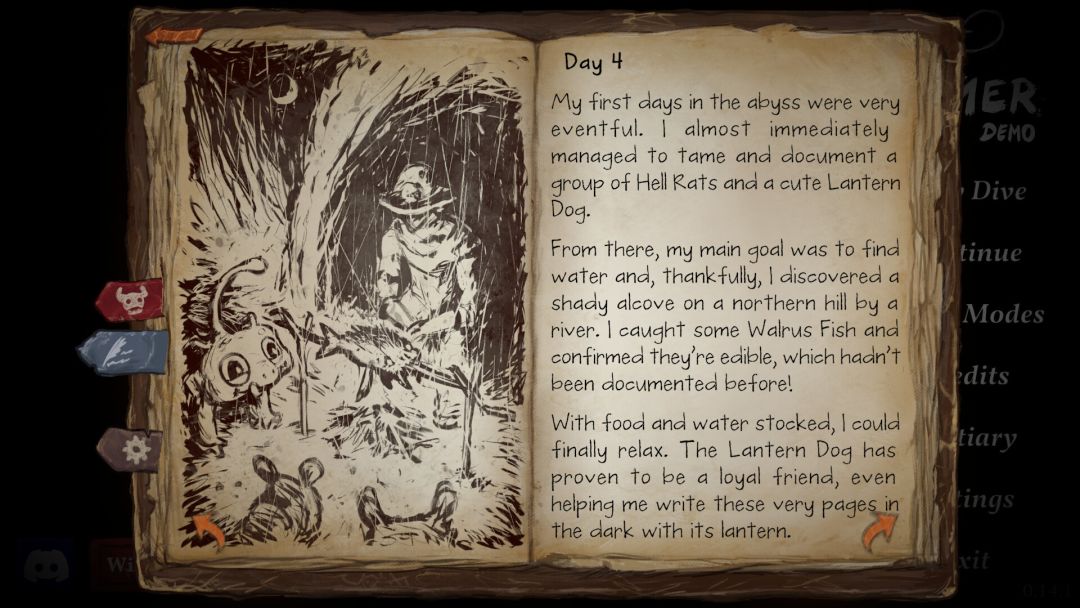 Day 4
My first days in the abyss were very
eventful. I almost immediately
managed to tame and document a
group of Hell Rats and a cute Lantern
Dog.
From there, my main goal was to find
water and, thankfully, I discovered a
shady alcove on a northern hill by a
river. I caught some Walrus Fish and
confirmed they're edible, which hadn't
been documented before!
With food and water stocked, I could
finally relax. The Lantern Dog has
proven to be a loyal friend, even
helping me write these very pages in
the dark with its lantern.
DEMO
Dive
Modes
0.14.1